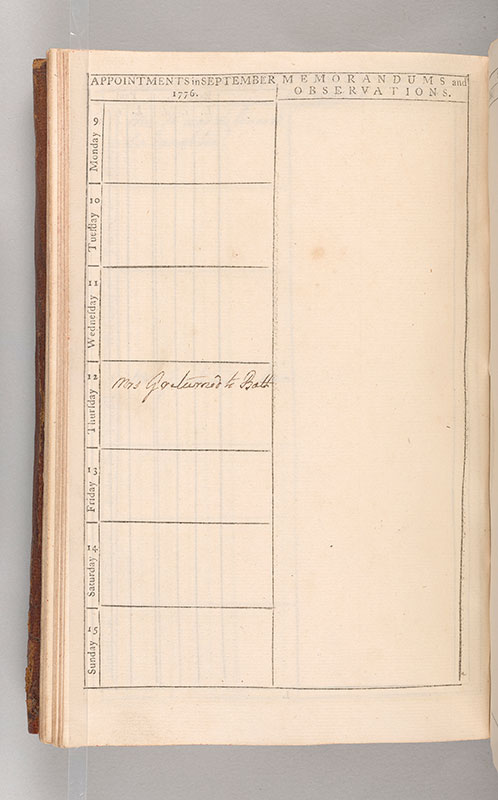 APPOINTMENTS in SEPTEMBER
1776.
MEMORANDUMS and
OBSERVATIONS.
Monday 9
Tueſday 10
Wedneſday 11
Thurſday 12
Mrs G returned to Bath
Friday 13
Saturday 14
Sunday 15